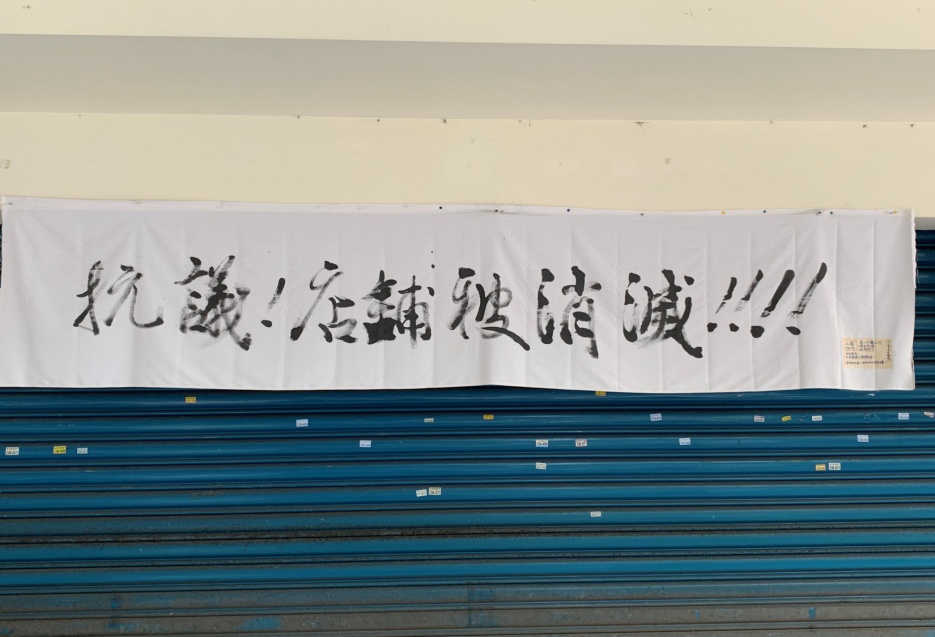 抗議！店舖被消滅！！！！